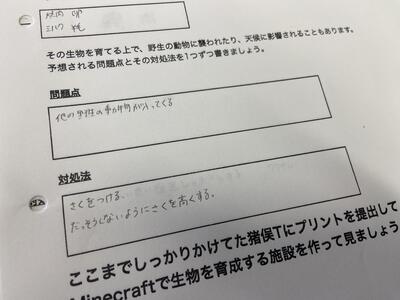 焼肉 卵
ミルク 羊毛
その生物を育てる上で、野生の動物に襲われたり、天候に影響されることもあります。
予想される問題点とその対処法を1つずつ書きましょう。
問題点
他の野性の動物が入ってくる
対処法
さくをつける、
だっそうしないようにさくを高くする。
ここまでしっかりかけてた猪俣Tにプリントを提出して
Minecraftで生物を育成する施設を作って見ましょう